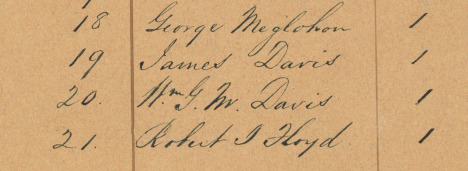 18 George Meglohon 1
19 James Davis 1
20. Wm. G. M. Davis 1
21. Robert J Floyd 1